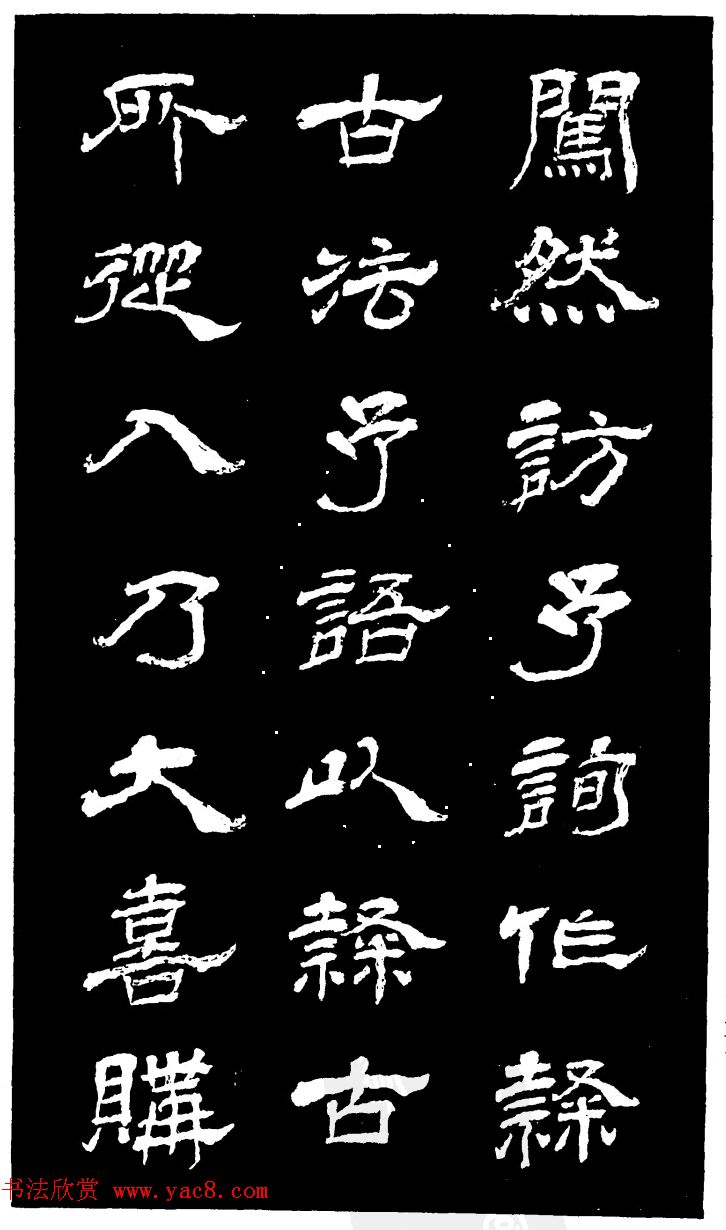 闖然訪予詢作隸
古法予語以隸古
所從入乃大喜購
书法欣赏 www.yac8.com